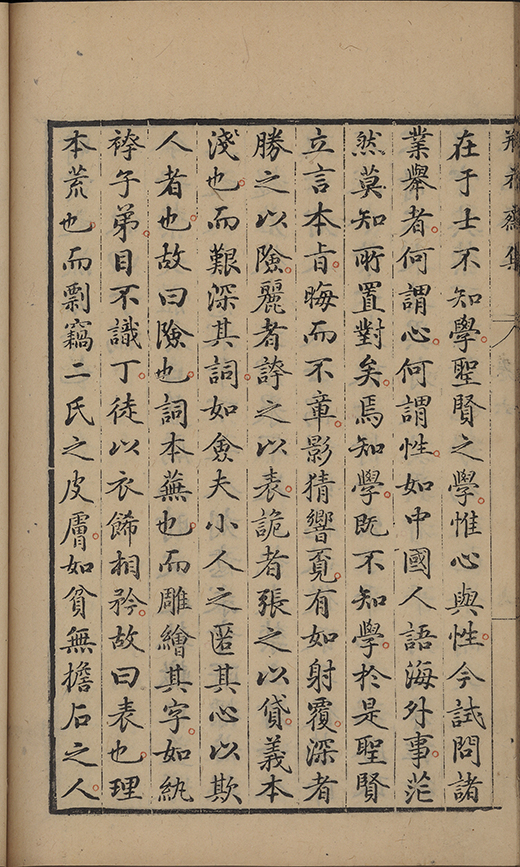 瓶花齋集
在于士不知學聖賢之學惟心與性今試問諸
業舉者何謂心何謂性如中國人語海外事茫
然莫知所置對矣焉知學既不知學於是聖賢
立言本旨晦而不章影猜響覓有如射覆深者
勝之以險麗者誇之以表詭者張之以貸義本
淺也而艱深其詞如僉夫小人之匿其心以欺
人者也故曰險也詞本蕪也而雕繪其字如紈
袴子弟目不識丁徒以衣飾相矜故曰表也理
本荒也而剽竊二氏之皮膚如貧無擔石之人